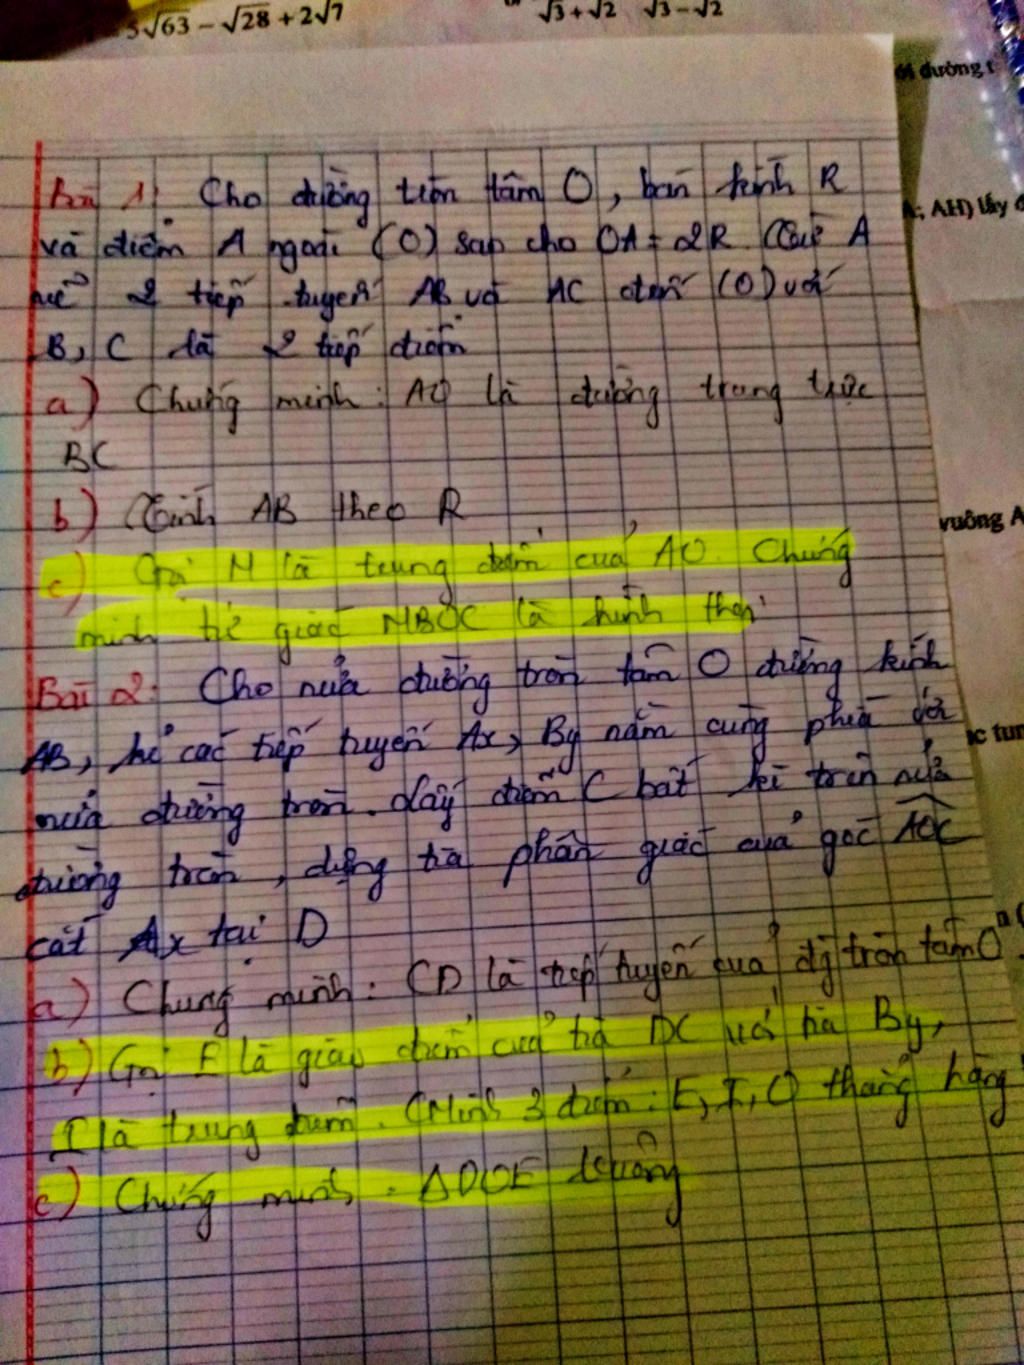 5√63 − √28 + 2√7
√3 + √2 √3 − √2
đường t
AH) lấy đ
Bài 1: Cho đường tròn tâm O, bán kính R
và điểm A ngoài (O) sao cho OA = 2R. Từ A
kẻ 2 tiếp tuyến AB và AC đến (O) với
B, C là 2 tiếp điểm
a) Chứng minh: AO là đường trung trực
BC
b) Tính AB theo R
vuông A
c) Gọi M là trung điểm của AO. Chứng
minh tứ giác MBOC là hình thoi
Bài 2: Cho nửa đường tròn tâm O đường kính
AB, kẻ các tiếp tuyến Ax, By nằm cùng phía với
nửa đường tròn. Lấy điểm C bất kì trên nửa
đường tròn, dựng tia phân giác của góc AOC
cắt Ax tại D
a) Chứng minh: CD là tiếp tuyến của tròn tâm O
b) Gọi E là giao điểm của tia DC với tia By,
I là trung điểm. CMinh 3 điểm: E, I, O thẳng hàng
c) Chứng minh: ΔDOE vuông